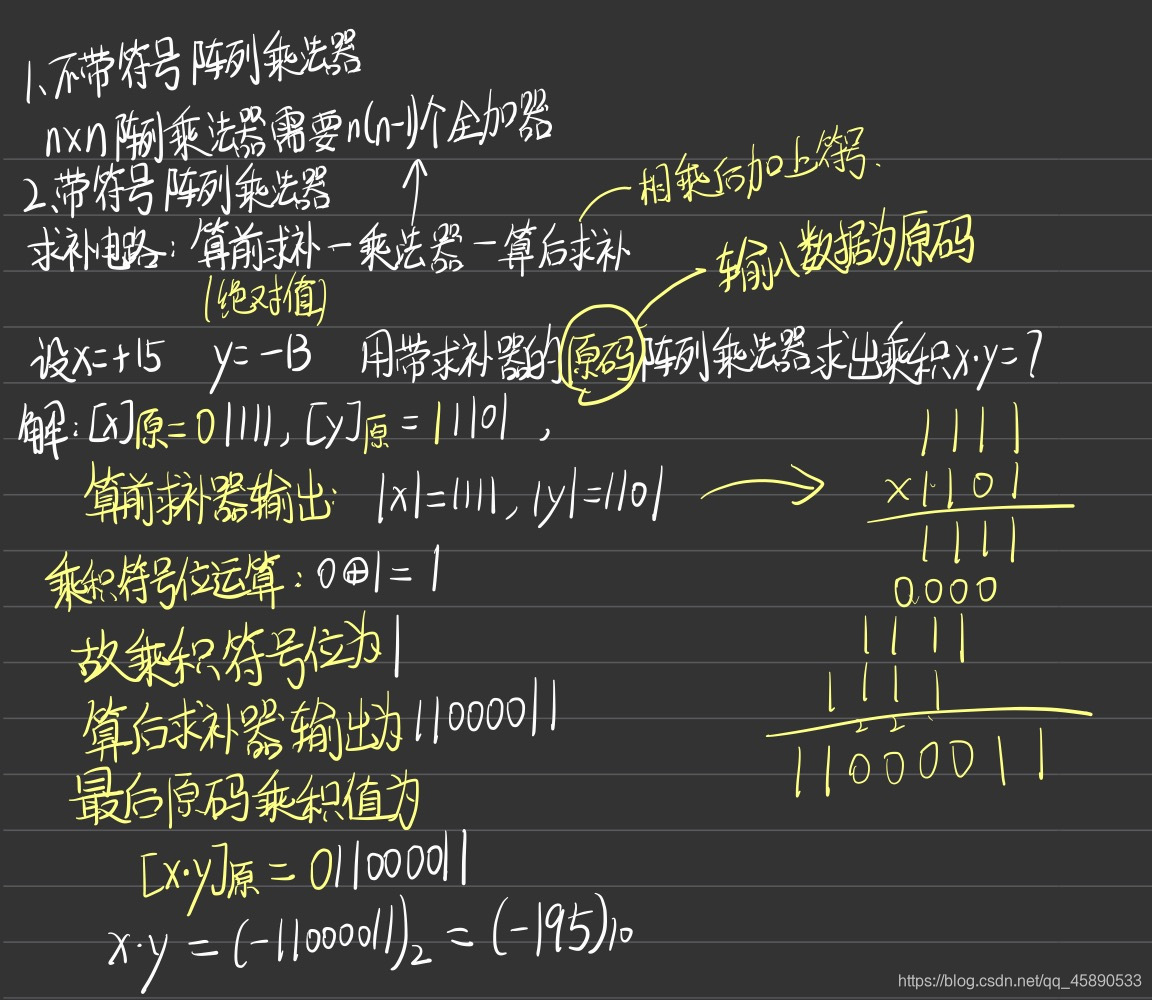 1、不带符号阵列乘法器
n×n阵列乘法器需要n(n-1)个全加器
2、带符号阵列乘法器
相乘后加上符号.
求补电路：算前求补－乘法器－算后求补
(绝对值)
输入数据为原码
设x=+15 y=-13 用带求补器的原码阵列乘法器求出乘积x·y=?
解：[x]原=01111，[y]原=11101，
算前求补器输出：|x|=1111，|y|=1101
乘积符号位运算：0⊕1=1
故乘积符号位为1
算后求补器输出为11000011
最后原码乘积值为
[x·y]原=011000011
x·y=(-11000011)₂=(-195)₁₀
1111
×1101
1111
0000
1111
1111
2 2 1
11000011
https://blog.csdn.net/qq_45890533